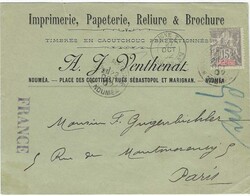 Imprimerie, Papeterie, Reliure & Brochure
TIMBRES EN CAOUTCHOUC PERFECTIONNÉS
A. J. Vulthenat
NOUMÉA. — PLACE DES COCOTIERS, RUES SÉBASTOPOL ET MARIGNAN. — NOUMÉA
OCT
15
NOUMEA
FRANCE
Monsieur F.
5 Rue de Montmorency
Paris